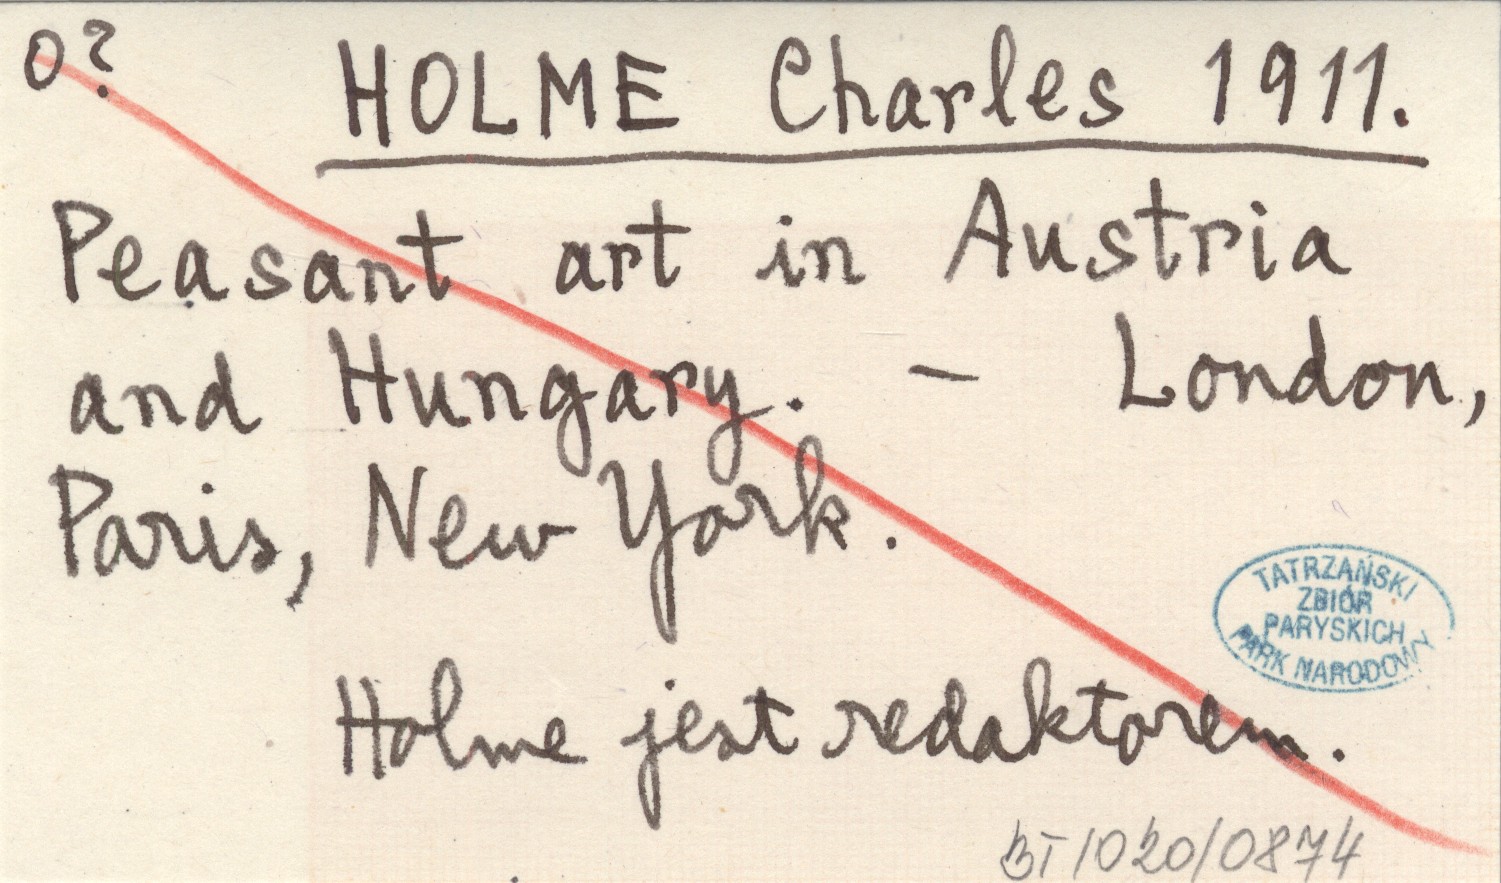 o?
HOLME Charles 1911.
Peasant art in Austria
and Hungary. – London,
Paris, New York.
TATRZAŃSKI
ZBIÓR
PARYSKICH
PARK NARODOWY
Holme jest redaktorem.
BT/020/0874